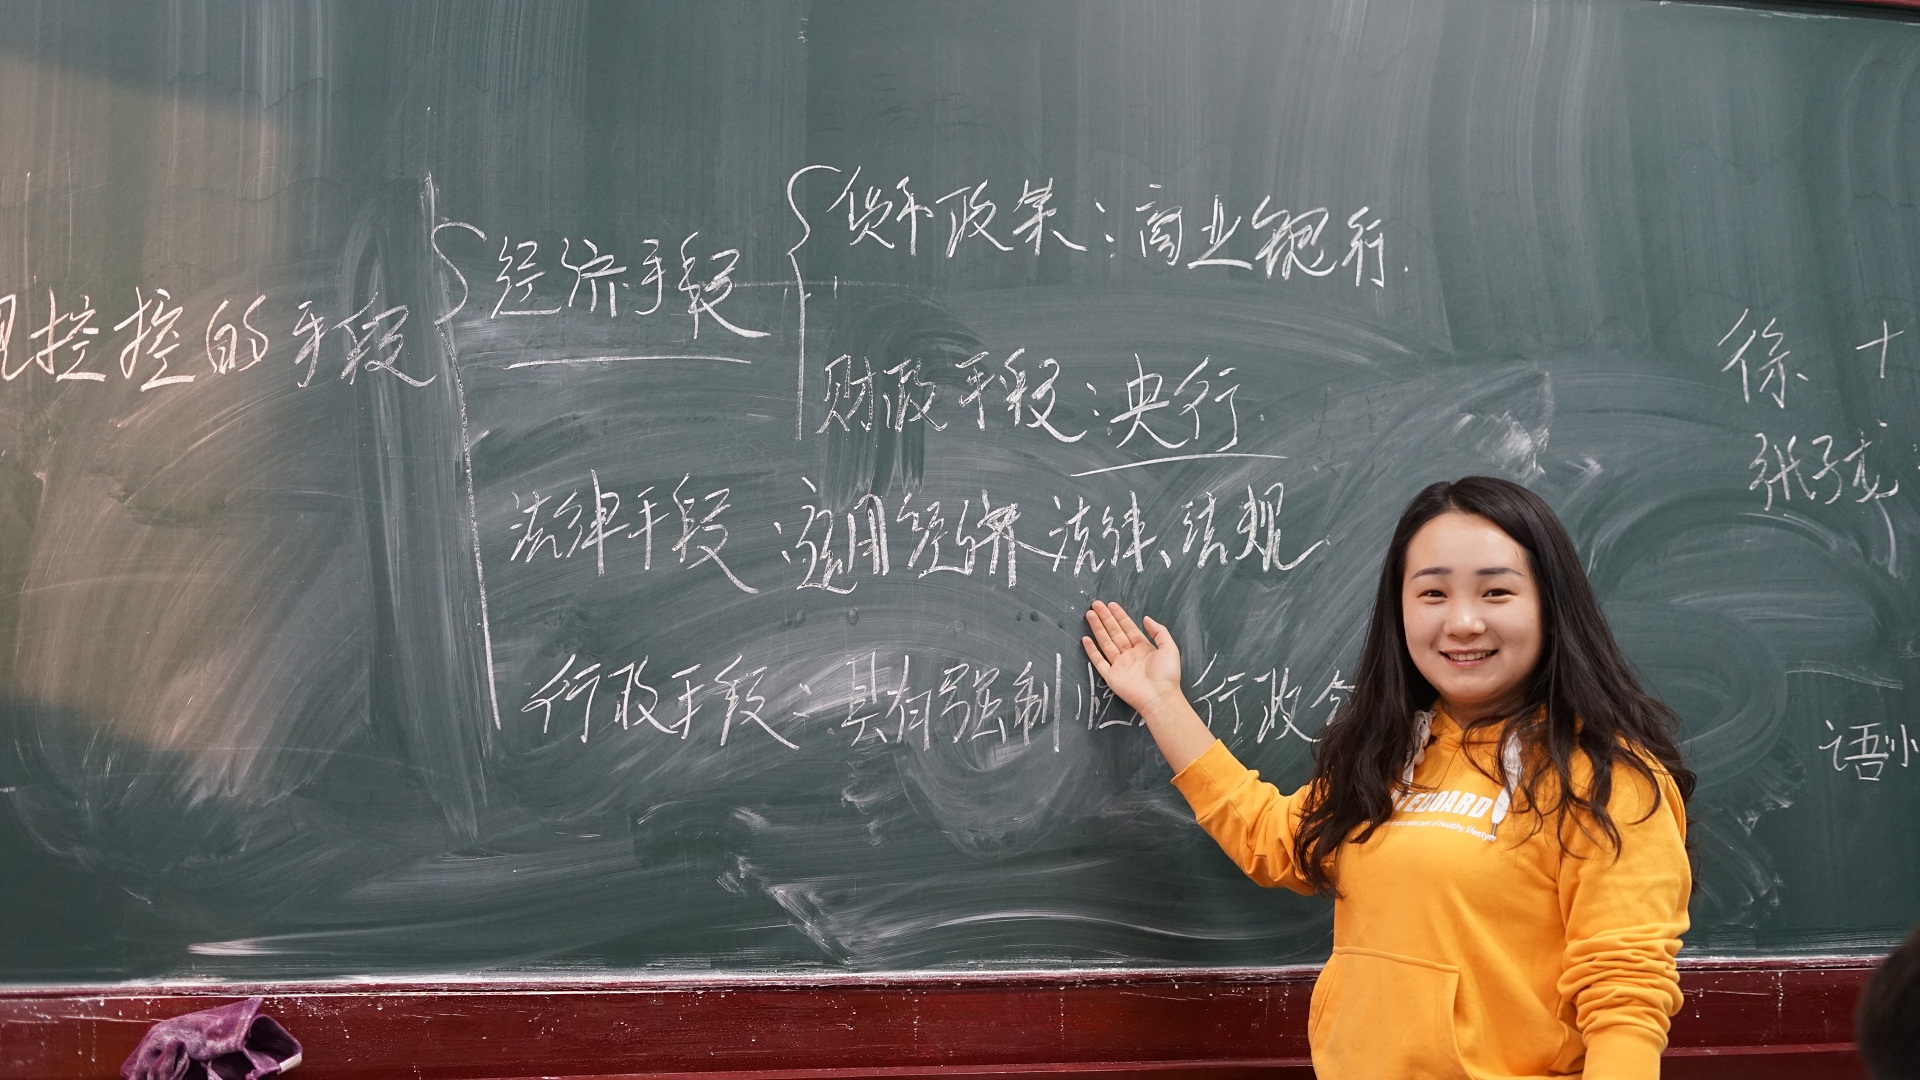 观控控的手段
经济手段
货币政策：商业银行.
财政手段：央行.
法律手段：运用经济法律、法规
行政手段：具有强制性 行政
徐 十
张子龙
语小